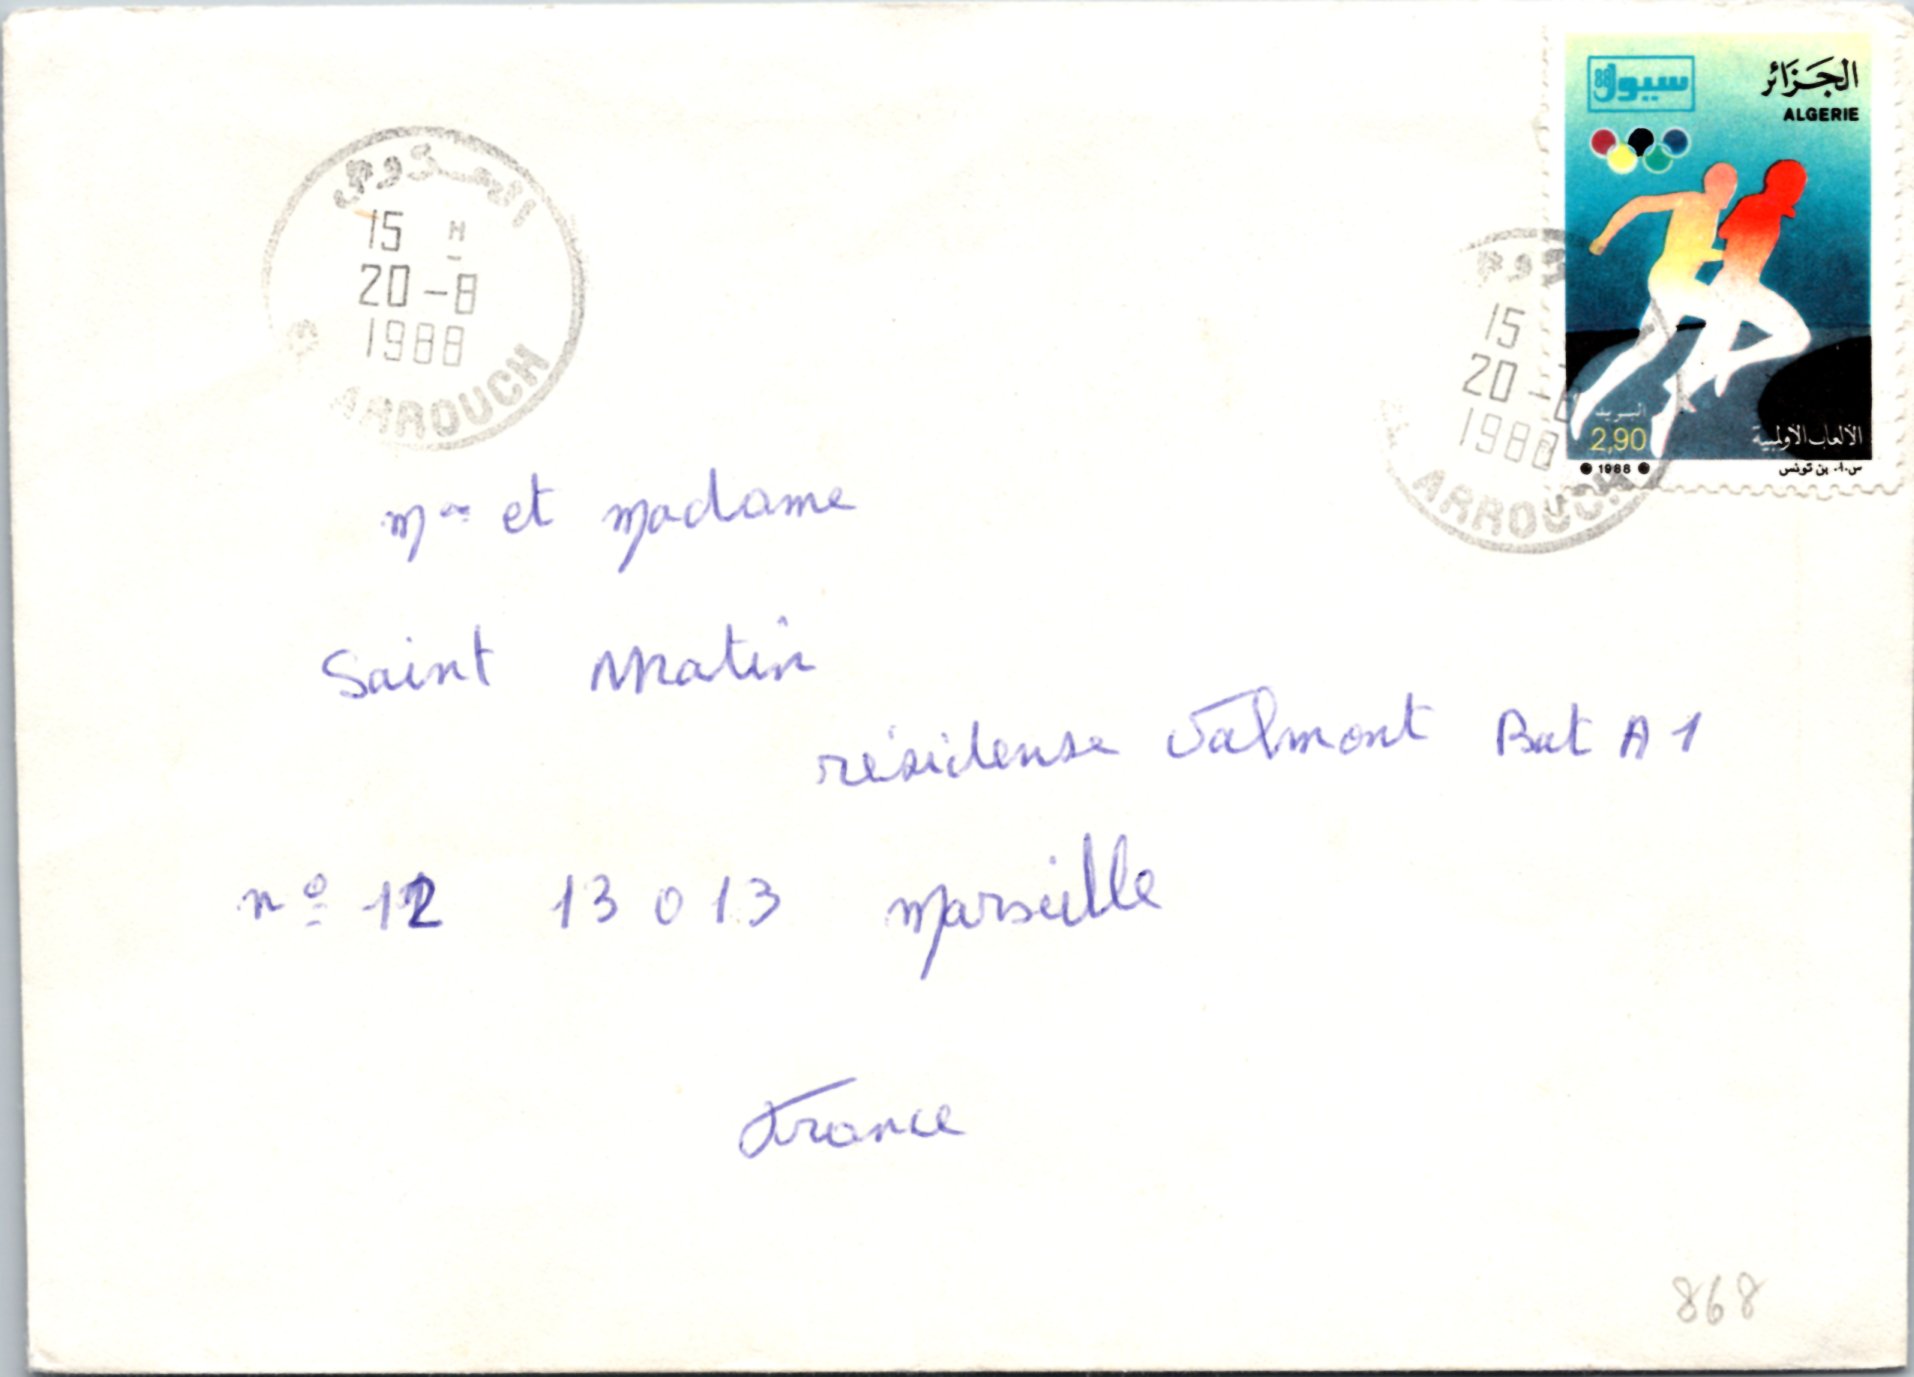 سيول 88
الجزائر
ALGERIE
البريد
2,90
الألعاب الأولمبية
1988
س.أ. بن تونس
15 H
20-8
1988
ARROUCH
15
20-8
1988
ARROUCH
Mr et Madame
Saint Matin
résidense Valmont Bat A1
n° 12 13013 Marseille
France
868